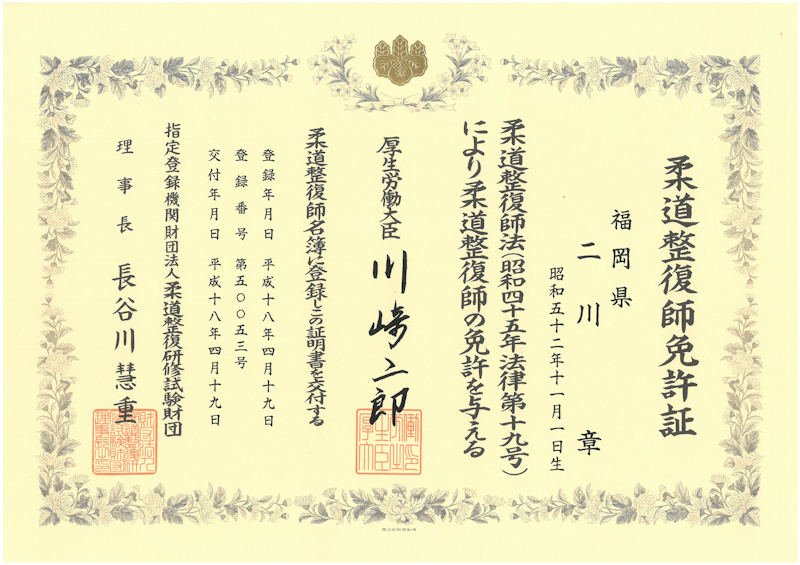 柔道整復師免許証
福岡県
二川 章
昭和五十二年十一月一日生
柔道整復師法(昭和四十五年法律第十九号)
により柔道整復師の免許を与える
厚生労働大臣 川崎二郎
柔道整復師名簿に登録しこの証明書を交付する
登録年月日 平成十八年四月十九日
登録番号 第五〇〇五三号
交付年月日 平成十八年四月十九日
指定登録機関財団法人柔道整復研修試験財団
理事長 長谷川慧重